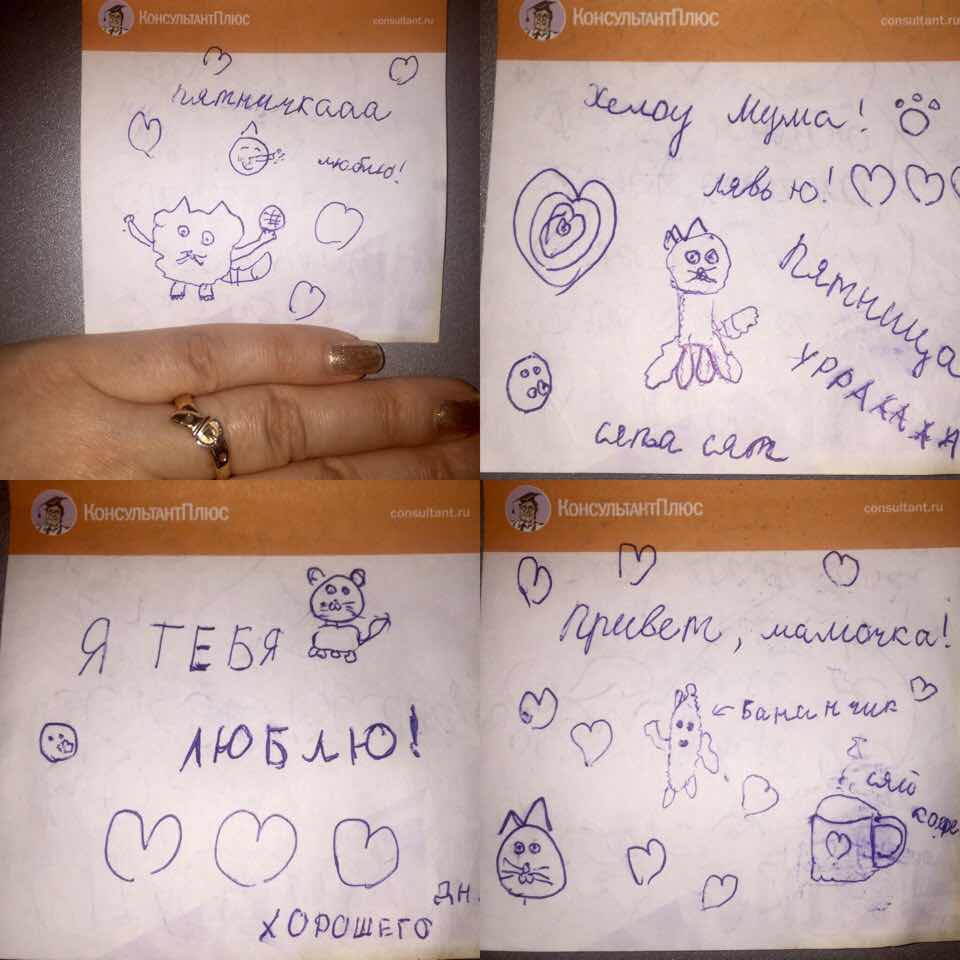 КонсультантПлюс
consultant.ru
пятничкааа
люблю!
КонсультантПлюс
consultant.ru
Хелоу Мума!
лявь ю!
Пятница
уррааааа
сяпа сят
КонсультантПлюс
consultant.ru
Я ТЕБЯ
ЛЮБЛЮ!
ХОРОШЕГО
ДН
КонсультантПлюс
consultant.ru
Привет, мамочка!
← Бананчик
кофе